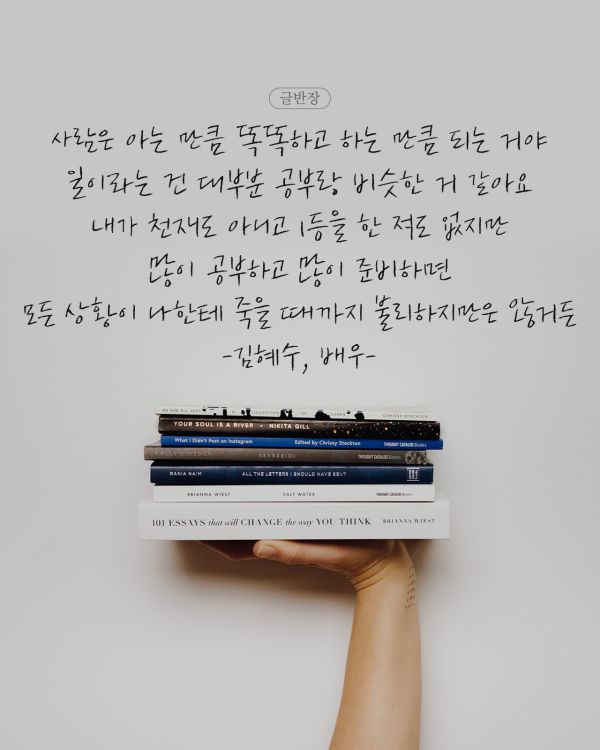 글반장
사람은 아는 만큼 똑똑하고 하는 만큼 되는 거야
일이라는 건 대부분 공부랑 비슷한 거 같아요
내가 천재도 아니고 1등을 한 적도 없지만
많이 공부하고 많이 준비하면
모든 상황이 나한테 죽을 때까지 불리하지만은 않거든
-김혜수, 배우-
WE ARE ALL JUST A COLLECTION OF CHRISSY STOCKTON
YOUR SOUL IS A RIVER • NIKITA GILL
What I Didn't Post on Instagram Edited by Chrissy Stockton THOUGHT CATALOG Books
HOLLY RIORDAN SEVERE(D) THOUGHT CATALOG Books
RANIA NAIM ALL THE LETTERS I SHOULD HAVE SENT
BRIANNA WIEST SALT WATER THOUGHT CATALOG Books
101 ESSAYS that will CHANGE the way YOU THINK BRIANNA WIEST